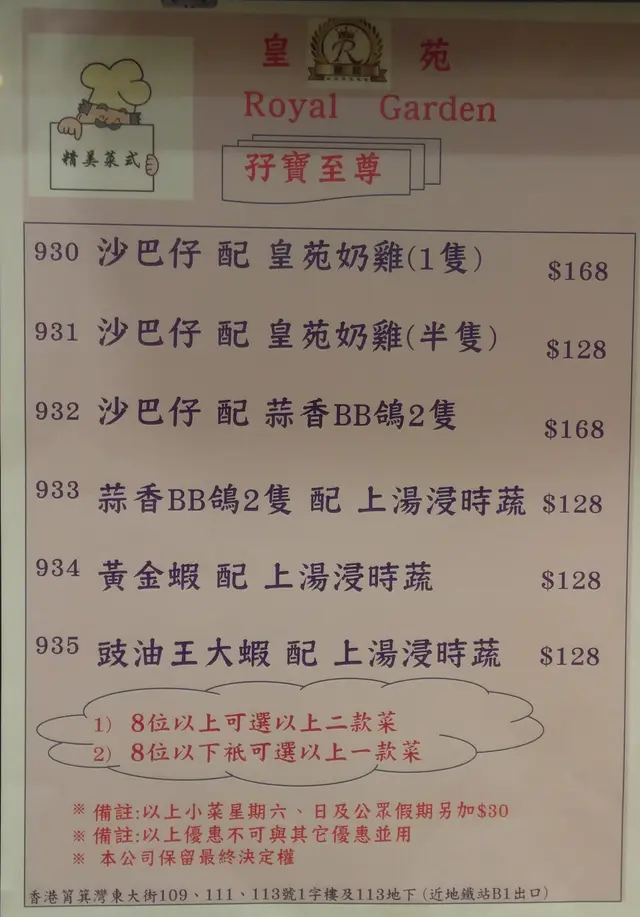 皇 苑
Royal Garden
精美菜式
孖寶至尊
930 沙巴仔 配 皇苑奶雞(1隻) $168
931 沙巴仔 配 皇苑奶雞(半隻) $128
932 沙巴仔 配 蒜香BB鴿2隻 $168
933 蒜香BB鴿2隻 配 上湯浸時蔬 $128
934 黃金蝦 配 上湯浸時蔬 $128
935 豉油王大蝦 配 上湯浸時蔬 $128
1) 8位以上可選以上二款菜
2) 8位以下衹可選以上一款菜
※ 備註:以上小菜星期六、日及公眾假期另加$30
※ 備註:以上優惠不可與其它優惠並用
※ 本公司保留最終決定權
香港筲箕灣東大街109、111、113號1字樓及113地下 (近地鐵站B1出口)